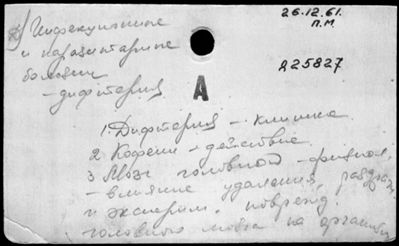 26.12.61.
П.М.
Инфекционные
и паразитарные
болезни
- дифтерия
Д25827
А
1 Дифтерия - клиника
2 Кофеин - действие
3 Мозг головной - физиол.
- влияние удаления, раздраж
и эксперим. поврежд.
головного мозга на организм